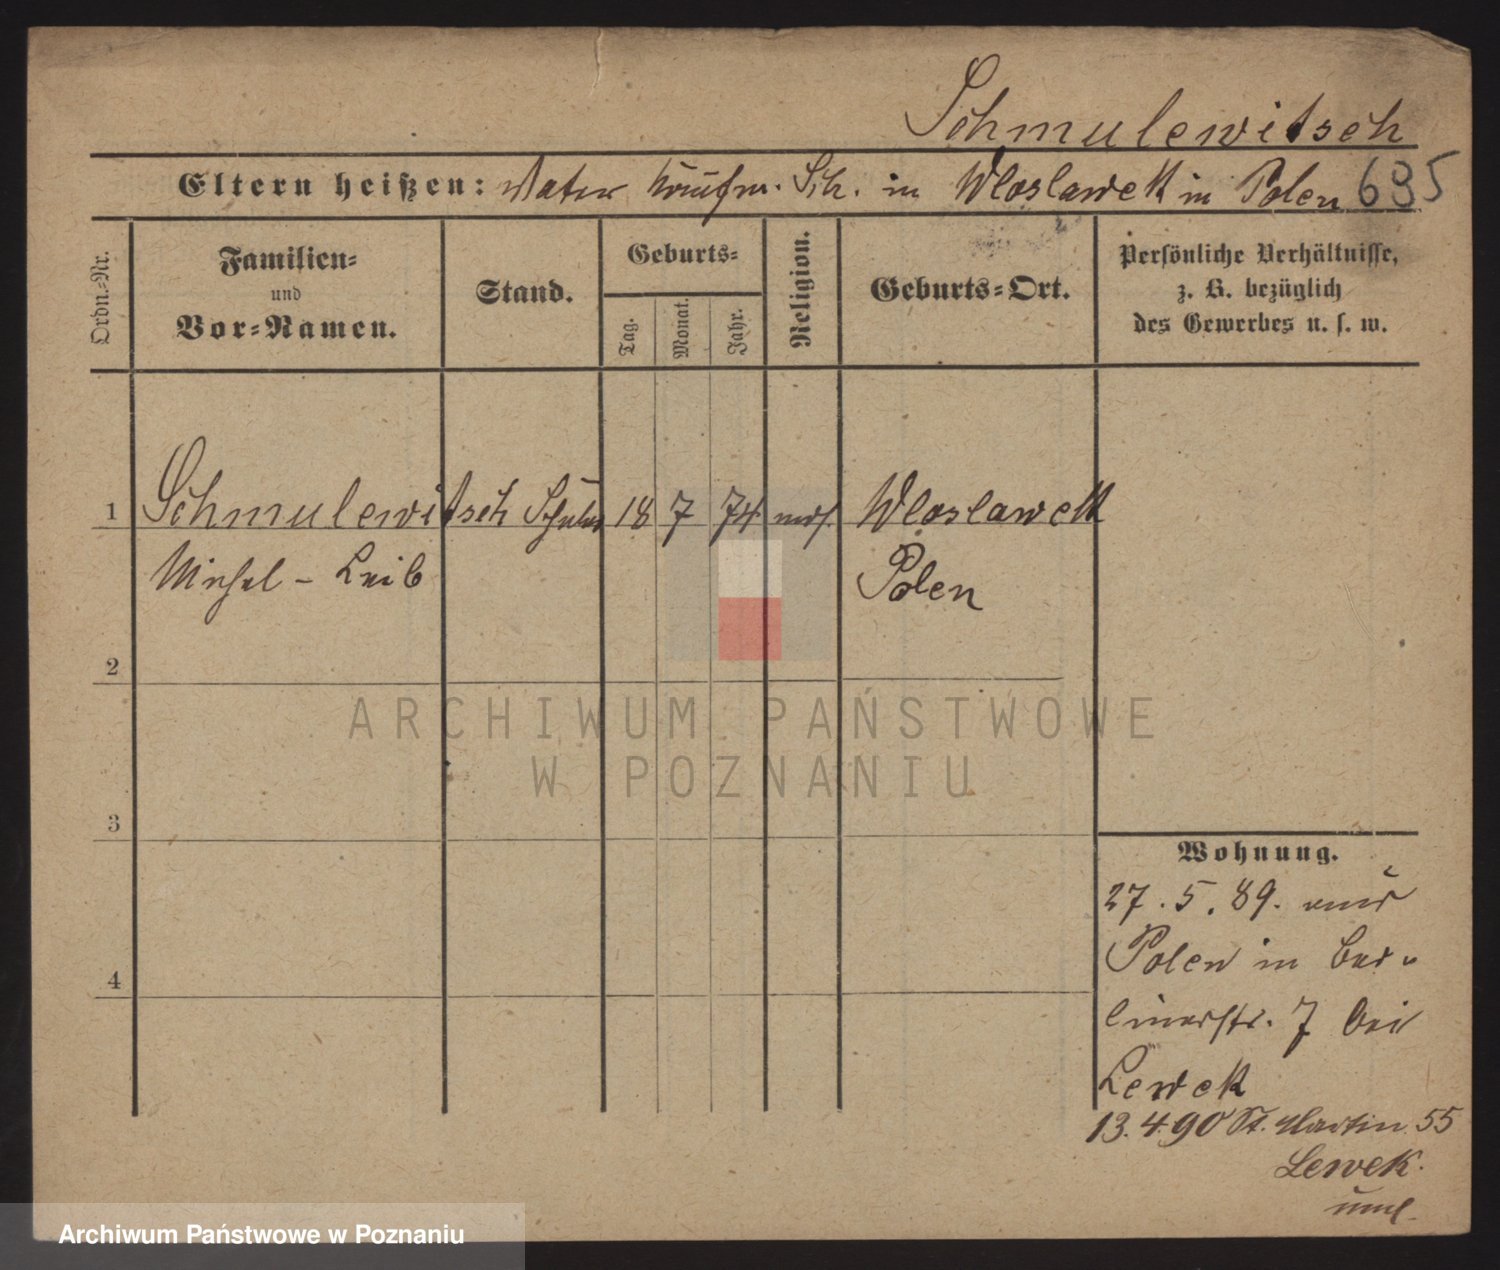 Schmulewitsch
Eltern heißen: Vater Kaufm. Sch. in Wloslawek in Polen 695
Ordn.-Nr.
Familien-
und
Vor-Namen.
Stand.
Geburts-
Tag.
Monat.
Jahr.
Religion.
Geburts-Ort.
Persönliche Verhältnisse,
z. B. bezüglich
des Gewerbes u. s. w.
1 Schmulewitsch Schüler 18 7 74 mos. Wloslawek
Michel - Leib Polen
2
3
4
ARCHIWUM PAŃSTWOWE
W POZNANIU
Wohnung.
27. 5. 89. aus
Polen in Ber-
linerstr. 7 bei
Lewek
13. 4. 90 St. Martin 55
Lewek.
Archiwum Państwowe w Poznaniu